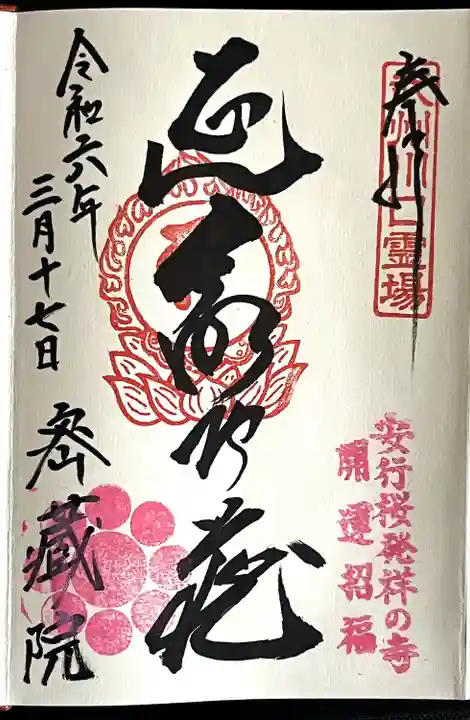 奉拝
武州川口霊場
安行桜発祥の寺
開運招福
延命地蔵
令和六年
三月十七日
密藏院